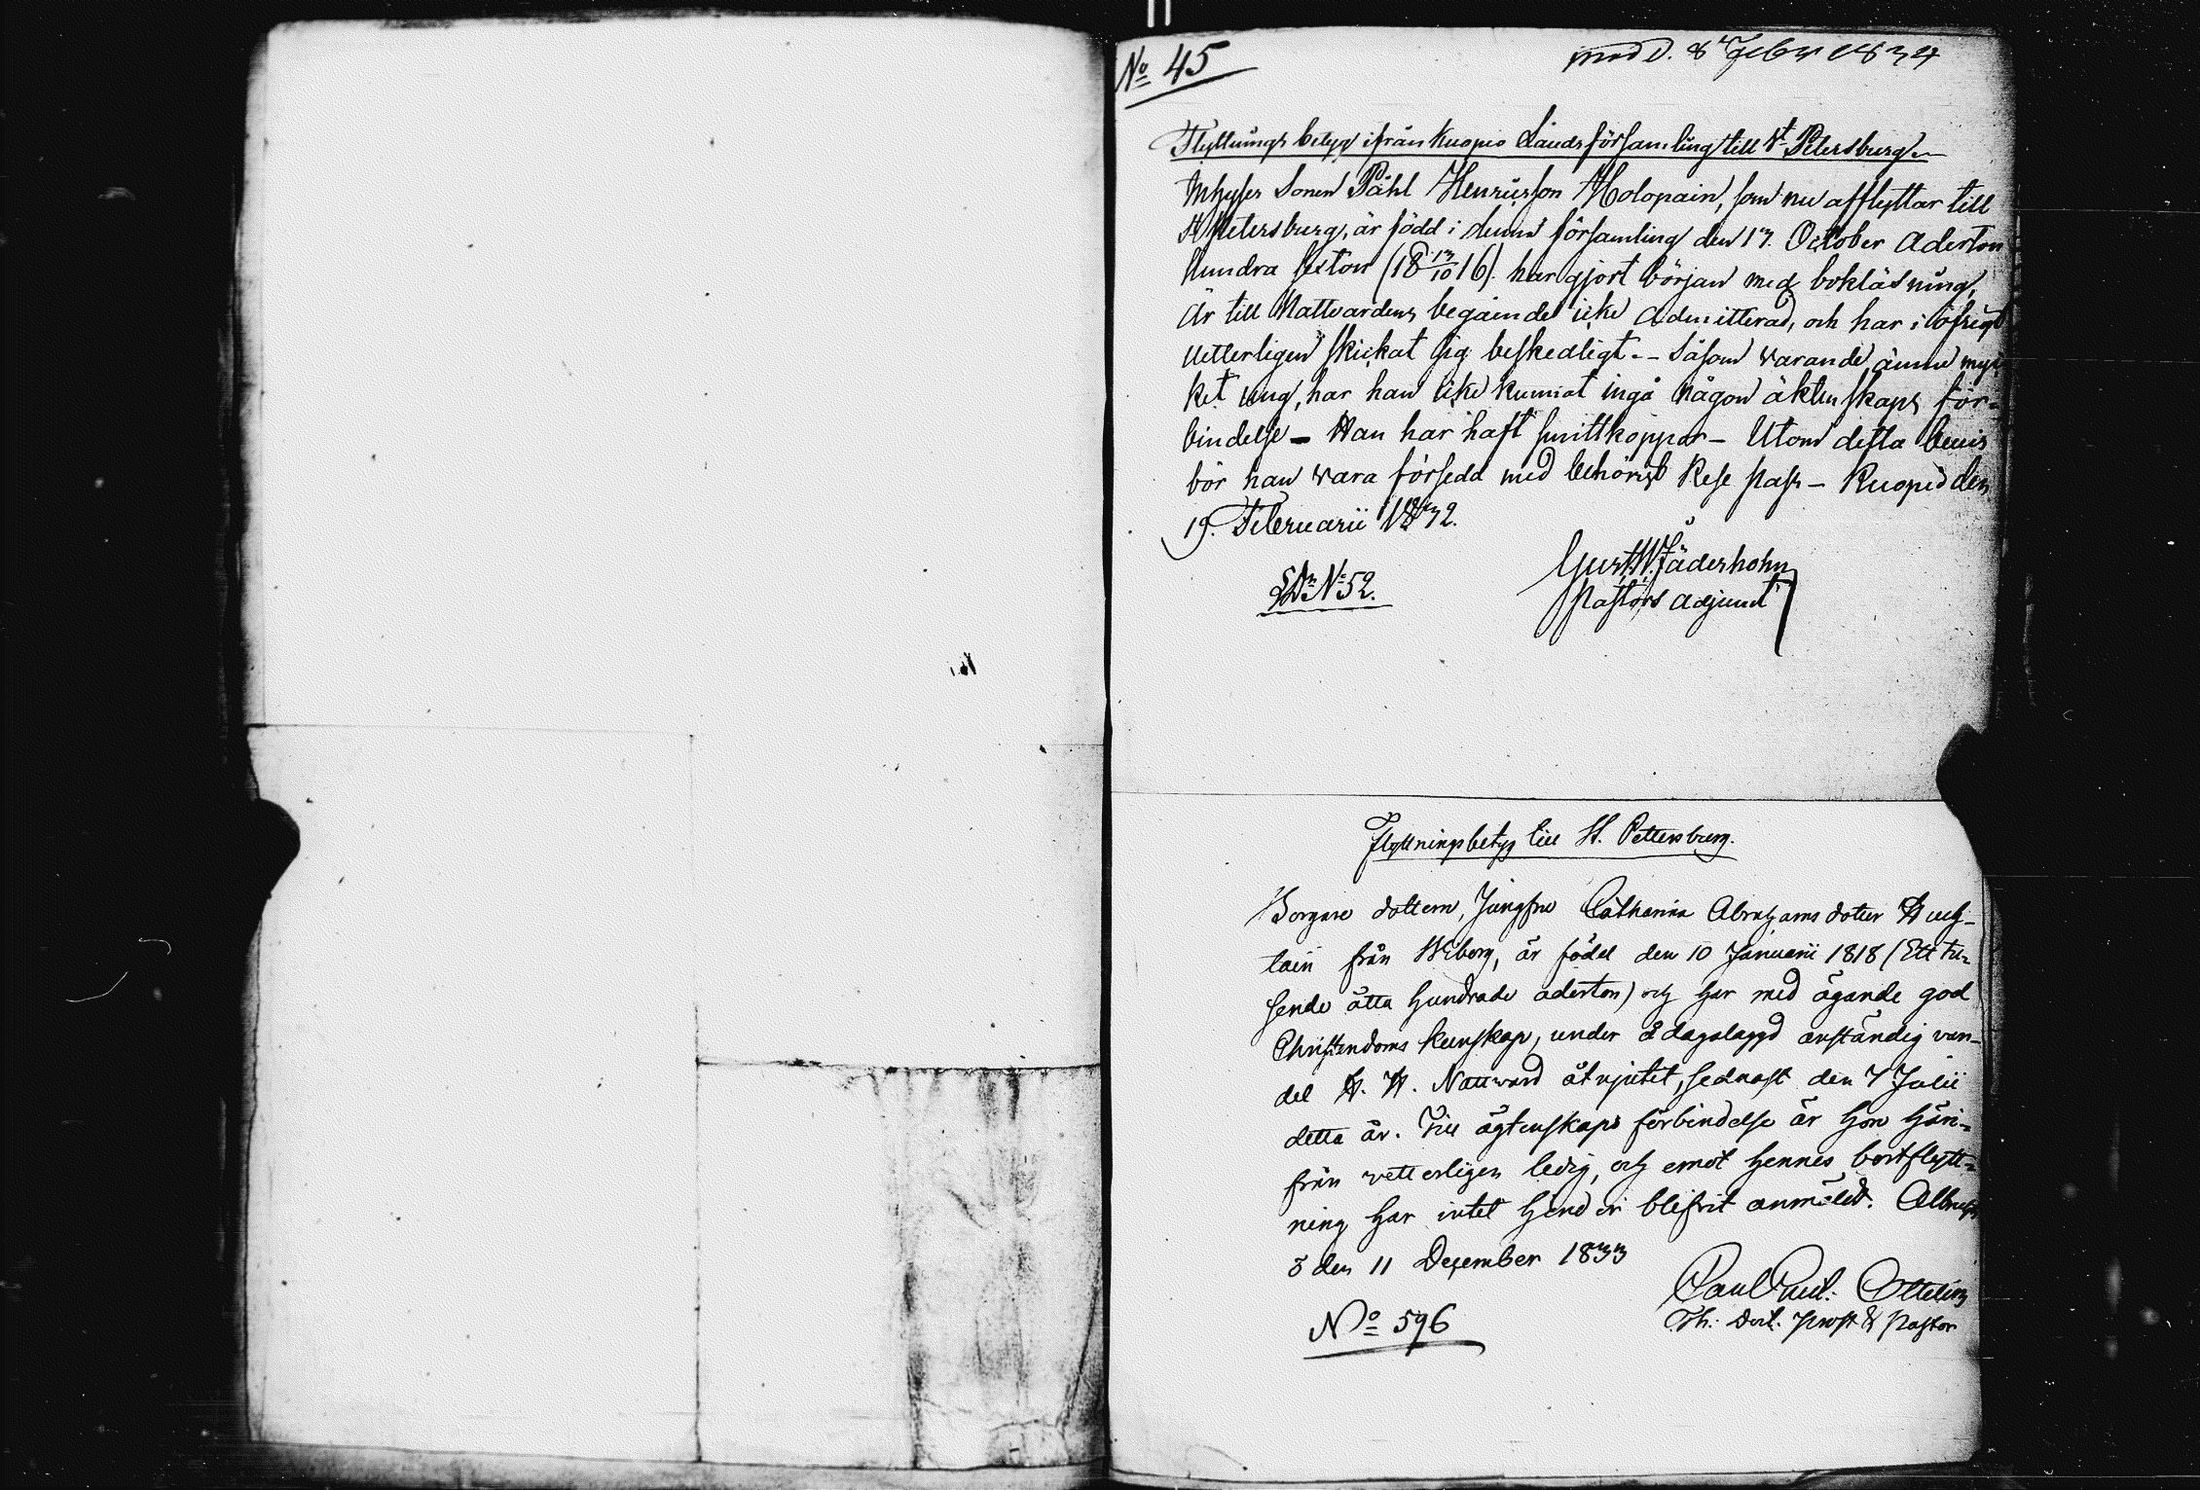 No 45
prod d. 8 Febr 1834
Flyttnings betyg ifrån Kuopio Landsförsamling till St Petersburg.
Inhyses Sonen Påhl Henricsson Holopain, som nu afflyttar till
St Petersburg, är född i denna församling den 13. October Aderton
hundra sexton (18 13/10 16). har gjort början med bokläsning,
är till Nattvardens begående icke admitterad, och har i öfrigt
vetterligen skickat sig beskedligt. - Såsom varande ännu myc
ket ung, har han icke kunnat ingå någon äktenskaps för-
bindelse - Han har haft smittkoppor - Utom detta bevis
bör han vara försedd med behörigt Rese pass - Kuopio den
19. Februarii 1832.
No 52.
Gust. W. Jäderhohn
Pastors Adjunct
Flyttningsbetyg till St. Pettersburg.
Borgare dottern, Jungfru Catharina Abrahams dotter
från Wiborg, är född den 10 Januarii 1818 (Ett tu-
sende åtta hundrade aderton) och har med ägande god
Christendoms kunskap, under ådagalaggd anständig van-
del H. H. Nattvard åtnjutet, sednast den 7 Julii
detta år. Till ägtenskaps förbindelse är hon häri-
från vetterligen ledig, och emot hennes bortflytt-
ning har intet hinder blifvit anmäldt.
d den 11 December 1833
No 596
Paul
Th. Doct. Prost & Pastor